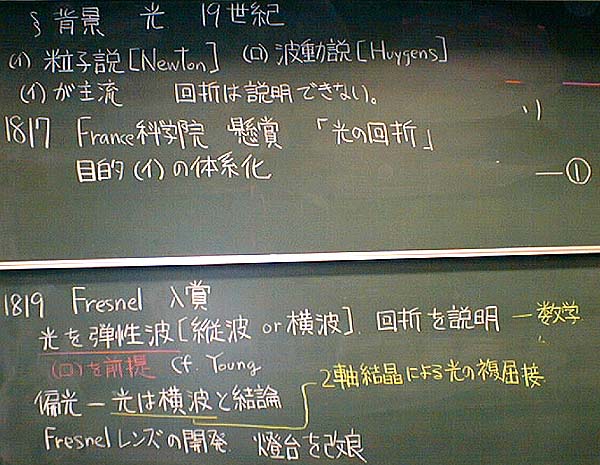 § 背景 光 19世紀
(イ) 粒子説[Newton] (ロ) 波動説[Huygens]
(イ)が主流 回折は説明できない。
1817 France科学院 懸賞 「光の回折」
目的(イ)の体系化
―①
1819 Fresnel 入賞
光を弾性波[縦波 or 横波]. 回折を説明 ―数学
(ロ)を前提 cf. Young
2軸結晶による光の複屈接
偏光 ― 光は横波と結論
Fresnelレンズの開発. 燈台を改良